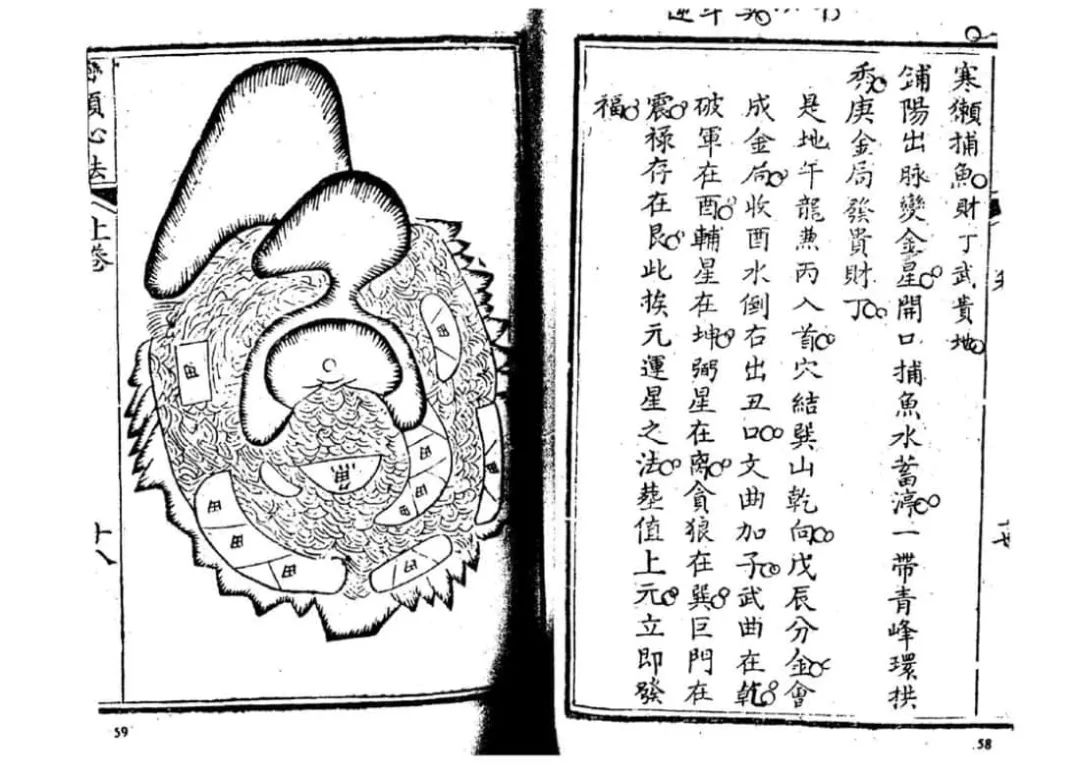 寒獺捕魚財丁武貴地
鋪陽出脉變金星開口捕魚水蓄渟一帶青峰環拱
秀庚金局發貴財丁
是地午龍兼丙入首穴結巽山乾向戊辰分金會
成金局收酉水倒右出丑口文曲加子武曲在乾
破軍在酉輔星在坤弼星在离貪狼在巽巨門在
震祿存在艮此挨元運星之法塟值上元立即發
福
58
巒頭心法
上卷
十八
田
田
田
田
田
田
田
田
田
59